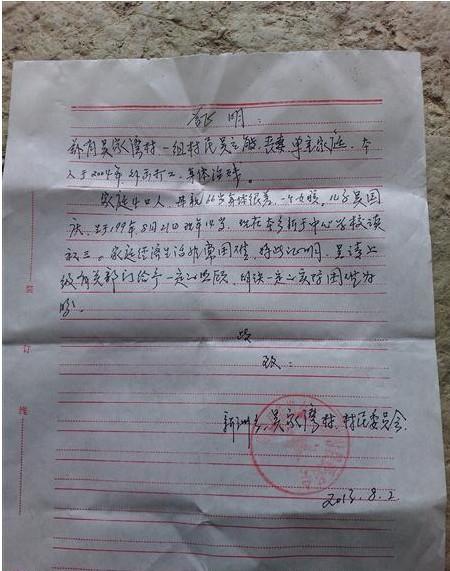 证明:
兹有吴家湾村一组村民吴立能,丧妻单亲家庭,本
人于2004年外出打工,身体
家庭4口人,母亲66岁身体很差,一个女孩,儿子吴国
庆,生于199年8月21日现年14岁,现在本乡折于中心学校读
初三。家庭经济生活非常困难,特此证明,呈请上
级有关部门给予一定的照顾,解决一定的实际困难为
盼。
此
致:
吴家湾村村民委员会
2013.8.2
装
订
线